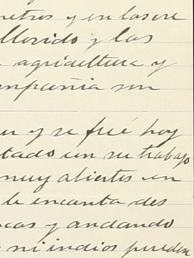 y en las re
llovido y las
agricultura y
mpañia son
y se fué hoy
tado en su trabajo
muy abiertos en
le encanta des
cas y andando
ni indios pueden